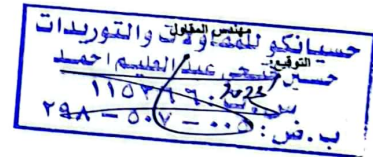 مهندس المقاول
حسيانكو للمقاولات والتوريدات
التوقيع:
حسين فتحى عبد العليم احمد
ب.ض: ٠٠٥ - ٥٠٧ - ٢٩٨